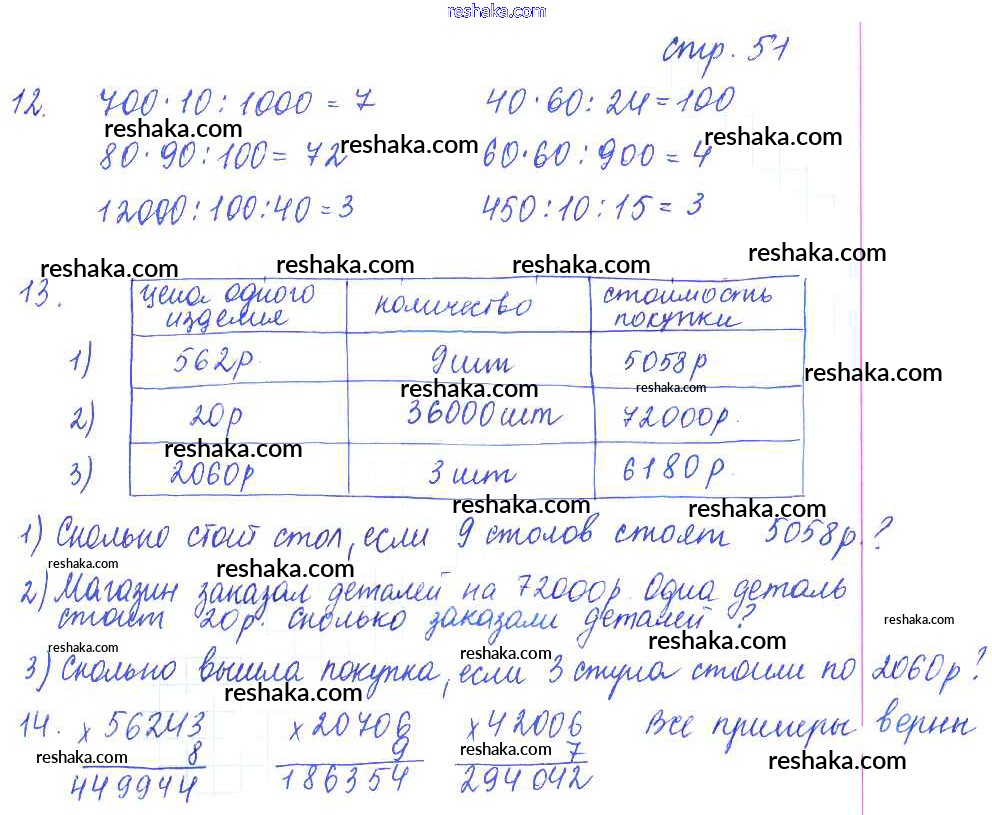 reshaka.com
стр. 51
12. 700·10:1000=7 40·60:24=100
reshaka.com reshaka.com reshaka.com
80·90:100=72 60·60:900=4
12000:100:40=3 450:10:15=3
reshaka.com reshaka.com reshaka.com reshaka.com
13. цена одного изделия количество стоимость покупки
1) 562р. 9шт 5058р
reshaka.com reshaka.com reshaka.com
2) 20р 36000шт 72000р.
reshaka.com
3) 2060р 3шт 6180р.
reshaka.com reshaka.com
1) Сколько стоит стол, если 9 столов стоят 5058р.?
reshaka.com reshaka.com reshaka.com
2) Магазин заказал деталей на 72000р. Одна деталь
стоит 20р. Сколько заказали деталей?
reshaka.com reshaka.com reshaka.com reshaka.com
3) Сколько вышла покупка, если 3 стула стоили по 2060р?
reshaka.com reshaka.com
14. х 56243 х 20706 х 42006 Все примеры верны
8 9 7
reshaka.com reshaka.com reshaka.com reshaka.com
449944 186354 294042